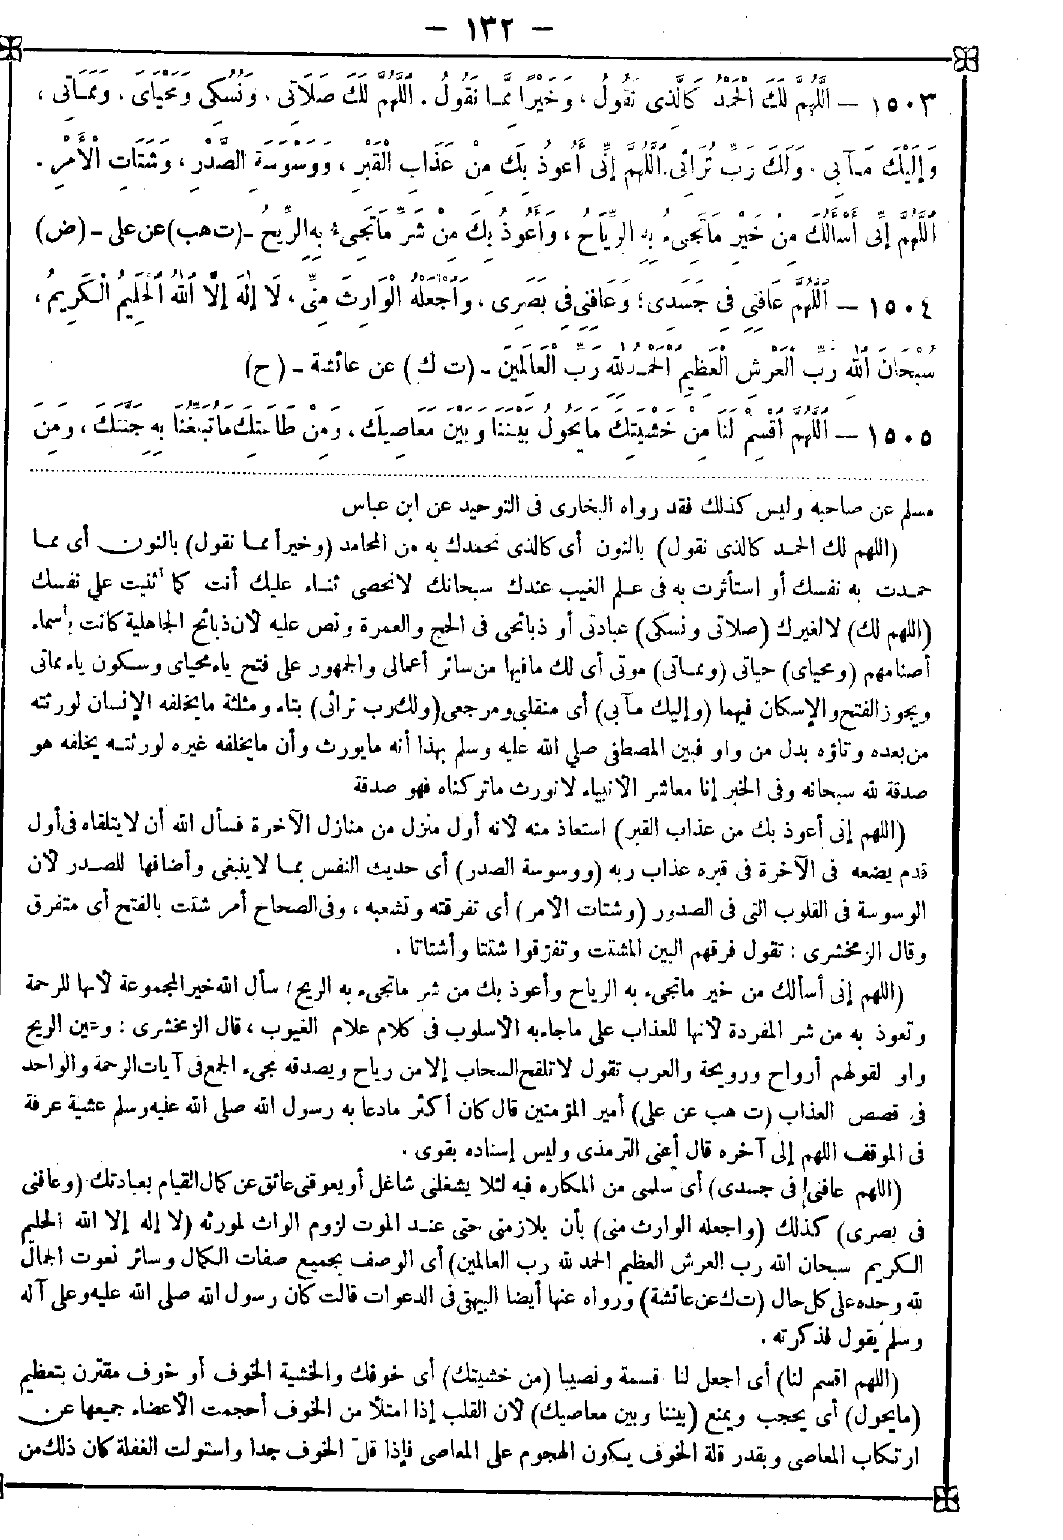 – ١٣٢ –
١٥٠٣ – اَللّٰهُمَّ لَكَ الْحَمْدُ كَالَّذِى نَقُولُ، وَخَيْرًا مِمَّا نَقُولُ. اَللّٰهُمَّ لَكَ صَلَاتِى. وَنُسُكِى وَمَحْيَاىَ. وَمَمَاتِى،
وَإِلَيْكَ مَـآبِى. وَلَكَ رَبِّ تُرَاثِى. اَللّٰهُمَّ إِنِّى أَعُوذُ بِكَ مِنْ عَذَابِ الْقَبْرِ، وَوَسْوَسَةِ الصَّدْرِ، وَشَتَاتِ الْأَمْرِ.
اَللّٰهُمَّ إِنِّى أَسْأَلُكَ مِنْ خَيْرِ مَا تَجِىءُ بِهِ الرِّيَاحُ، وَأَعُوذُ بِكَ مِنْ شَرِّ مَا تَجِىءُ بِهِ الرِّيحُ – (ت هب) عن على – (ض)
١٥٠٤ – اَللّٰهُمَّ عَافِنِى فِى جَسَدِى؛ وَعَافِنِى فِى بَصَرِى. وَاجْعَلْهُ الْوَارِثَ مِنِّى، لَا إِلٰهَ إِلَّا اَللّٰهُ اَلْحَلِيمُ الْكَرِيمُ،
سُبْحَانَ اَللّٰهِ رَبِّ الْعَرْشِ الْعَظِيمِ الْحَمْدُ لِلّٰهِ رَبِّ الْعَالَمِينَ – (ت ك) عن عائشة – (ح)
١٥٠٥ – اَللّٰهُمَّ اقْسِمْ لَنَا مِنْ خَشْيَتِكَ مَا يَحُولُ بَيْنَنَا وَبَيْنَ مَعَاصِيكَ، وَمِنْ طَاعَتِكَ مَا تُبَلِّغُنَا بِهِ جَنَّتَكَ، وَمِنَ
مسلم عن صاحبه وليس كذلك فقد رواه البخارى فى التوحيد عن ابن عباس
(اللهم لك الحمد كالذى نقول) بالنون أى كالذى نحمدك به من المحامد (وخيراً مما نقول) بالنون أى مما
حمدت به نفسك أو استأثرت به فى علم الغيب عندك سبحانك لانحصى ثناء عليك أنت كما أثنيت على نفسك
(اللهم لك) لا لغيرك (صلاتى ونسكى) عبادتى أو ذبائحى فى الحج والعمرة ونص عليه لأن ذبائح الجاهلية كانت بأسماء
أصنامهم (ومحياى) حياتى (ومماتى) موتى أى لك ما فيها من سائر أعمالى والجمهور على فتح ياء محياى وسكون ياء مماتى
ويجوز الفتح والإسكان فيهما (وإليك مآبى) أى منقلبى ومرجعى (ولك رب تراثى) بتاء ومثلثة مايخلفه الإنسان لورثته
من بعده وتاؤه بدل من واو فبين المصطفى صلى الله عليه وسلم بهذا أنه مايورث وأن مايخلفه غيره لورثته يخلفه هو
صدقة لله سبحانه وفى الخبر إنا معاشر الأنبياء لانورث ماتركناه فهو صدقة
(اللهم إنى أعوذ بك من عذاب القبر) استعاذ منه لأنه أول منزل من منازل الآخرة فسأل الله أن لا يتلقاه فى أول
قدم يضعه فى الآخرة فى قبره عذاب ربه (ووسوسة الصدر) أى حديث النفس بما لا ينبغى وأضافها للصدر لأن
الوسوسة فى القلوب التى فى الصدور (وشتات الأمر) أى تفرقته وتشعبه، وفى الصحاح أمر شتت بالفتح أى متفرق
وقال الزمخشرى: تقول فرقهم البين المشتت وتفرقوا شتتا وأشتاتا.
(اللهم إنى أسألك من خير ماتجىء به الرياح وأعوذ بك من شر ماتجىء به الريح) سأل الله خير المجموعة لأنها للرحمة
وتعوذ به من شر المفردة لأنها للعذاب على ماجاء به الأسلوب فى كلام علام الغيوب، قال الزمخشرى: وعين الريح
واو لقولهم أرواح ورويحة والعرب تقول لا تلقح السحاب إلا من رياح ويصدقه مجىء الجمع فى آيات الرحمة والواحد
فى قصص العذاب (ت هب عن على) أمير المؤمنين قال كان أكثر مادعا به رسول الله صلى الله عليه وسلم عشية عرفة
فى الموقف اللهم إلى آخره قال أعنى الترمذى وليس إسناده بقوى.
(اللهم عافنى فى جسدى) أى سلمنى من المكاره فيه لئلا يشغلنى شاغل أو يعوقنى عائق عن كمال القيام بعبادتك (وعافنى
فى بصرى) كذلك (واجعله الوارث منى) بأن يلازمنى حتى عند الموت لزوم الوارث لمورثه (لا إله إلا الله الحليم
الكريم سبحان الله رب العرش العظيم الحمد لله رب العالمين) أى الوصف بجميع صفات الكمال وسائر نعوت الجمال
لله وحده على كل حال (ت ك عن عائشة) ورواه عنها أيضا البيهقى فى الدعوات قالت كان رسول الله صلى الله عليه وعلى آله
وسلم يقول فذكرته.
(اللهم اقسم لنا) أى اجعل لنا قسمة ونصيبا (من خشيتك) أى خوفك والخشية الخوف أو خوف مقترن بتعظيم
(مايحول) أى يحجب ويمنع (بيننا وبين معاصيك) لأن القلب إذا امتلأ من الخوف أحجمت الأعضاء جميعها عن
ارتكاب المعاصى وبقدر قلة الخوف يكون الهجوم على المعاصى فإذا قل الخوف جدا واستولت الغفلة كان ذلك من